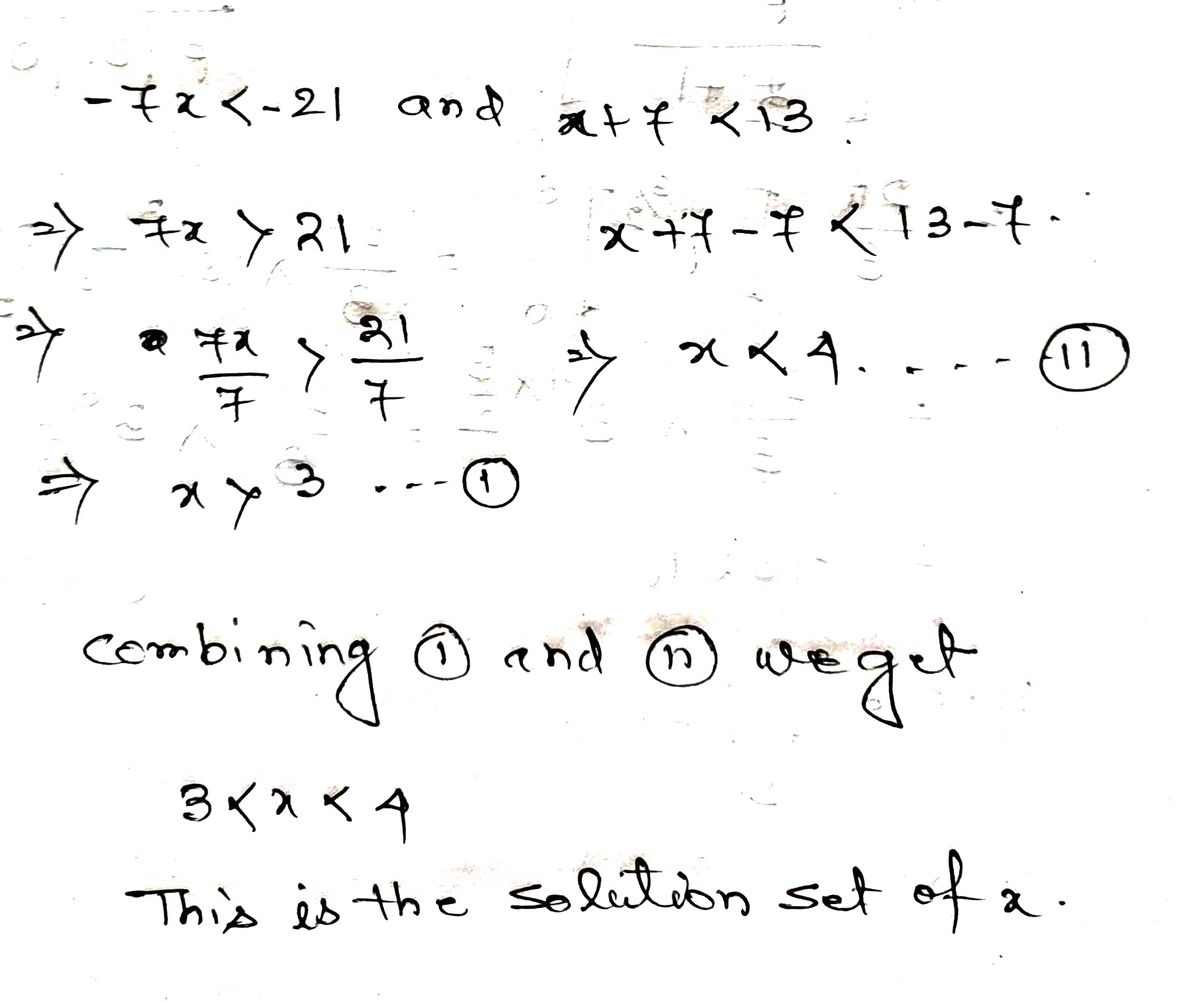 -7x < -21 and x+7 < 13.
⇒ 7x > 21 x+7-7 < 13-7.
⇒ 7x/7 > 21/7 ⇒ x < 4. .... (11)
⇒ x > 3 .... (1)
combining (1) and (11) we get
3 < x < 4
This is the solution set of x.